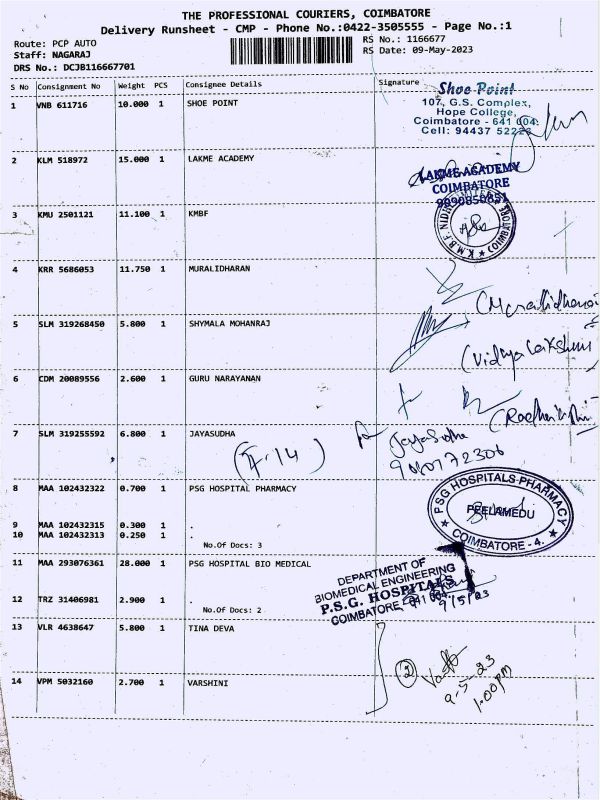 THE PROFESSIONAL COURIERS, COIMBATORE
Delivery Runsheet - CMP - Phone No.:0422-3505555 - Page No.:1
Route: PCP AUTO
RS No.: 1166677
Staff: NAGARAJ
RS Date: 09-May-2023
DRS No.: DCJB116667701
S No Consignment No Weight PCS Consignee Details Signature
1 VNB 611716 10.000 1 SHOE POINT
Shoe Point
107, G.S. Complex,
Hope College,
Coimbatore - 641 004.
Cell: 94437
2 KLM 518972 15.000 1 LAKME ACADEMY
LAKME ACADEMY
COIMBATORE
3 KMU 2501121 11.100 1 KMBF
4 KRR 5686053 11.750 1 MURALIDHARAN
5 SLM 319268450 5.800 1 SHYMALA MOHANRAJ
(Vidya Lakshmi
6 CDM 20089556 2.600 1 GURU NARAYANAN
7 SLM 319255592 6.800 1 JAYASUDHA
(F-14)
for Jayasudha
8 MAA 102432322 0.700 1 PSG HOSPITAL PHARMACY
PSG HOSPITALS PHARMACY
PEELAMEDU
COIMBATORE - 4.
9 MAA 102432315 0.300 1 .
10 MAA 102432313 0.250 1 .
No.Of Docs: 3
11 MAA 293076361 28.000 1 PSG HOSPITAL BIO MEDICAL
DEPARTMENT OF
BIOMEDICAL ENGINEERING
P.S.G. HOSPITALS
COIMBATORE 641 004
9/5/23
12 TRZ 31406981 2.900 1 .
No.Of Docs: 2
13 VLR 4638647 5.800 1 TINA DEVA
2
9-5-23
1.00pm
14 VPM 5032160 2.700 1 VARSHINI